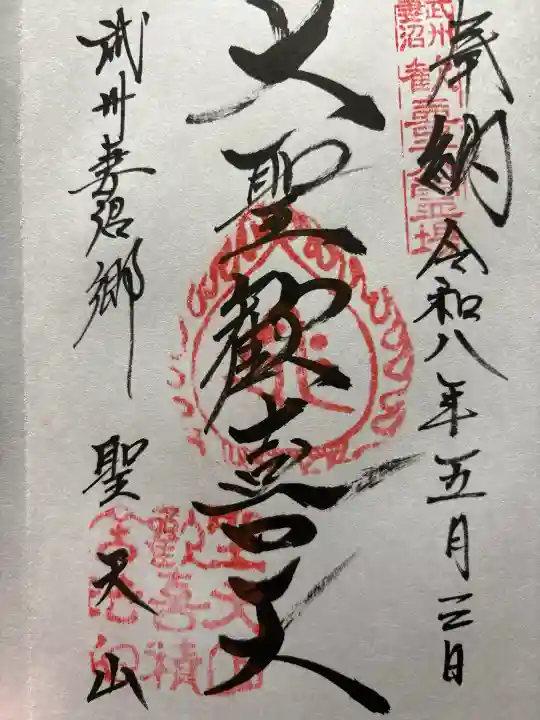 奉納
令和八年五月三日
大聖歓喜天
武州妻沼郷
聖天山
武州
妻沼